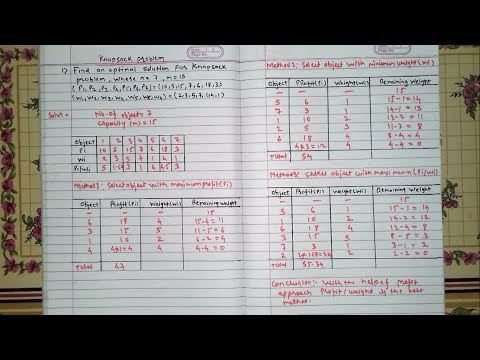 Knapsack problem
1) Find an optimal solution for knapsack
problem, where n=7, m=15
(P1,P2,P3,P4,P5,P6,P7)=(10,5,15,7,6,18,3)
(w1,w2,w3,w4,w5,w6,w7)=(2,3,5,7,1,4,1)
Solut:-
No. of object= 7
capacity (m) = 15
Object 1 2 3 4 5 6 7
Pi 10 5 15 7 6 18 3
Wi 2 3 5 7 1 4 1
Pi/Wi 5 3 1 6 3
Method1:- select object with maximum profit(Pi)
Object Profit(Pi) Weight(wi) Remaining Weight
— — — 15
6 18 4 15-4=11
3 15 5 11-5=6
1 10 2 6-2=4
4 4 4-4=0
Total 47
Method2:- select object with minimum weight(wi)
Object Profit(Pi) Weight(wi) Remaining Weight
— — — 15
5 6 1 15-1=14
7 3 1 14-1=13
1 10 2 13-2=11
2 5 3 11-3=8
6 18 4 8-4=4
3 4 4-4=0
Total 54
Method3:- select object with maximum (Pi/wi)
Object Profit(Pi) Weight(wi) Remaining Weight
— — — 15
5 6 1 15-1=14
1 10 2 14-2=12
6 18 4 12-4=8
3 15 5 8-5=3
7 3 1 3-1=2
2 2 2-2=0
Total 55.34
Conclusion:- with the help of profit
approach Profit/weight is the best
method.